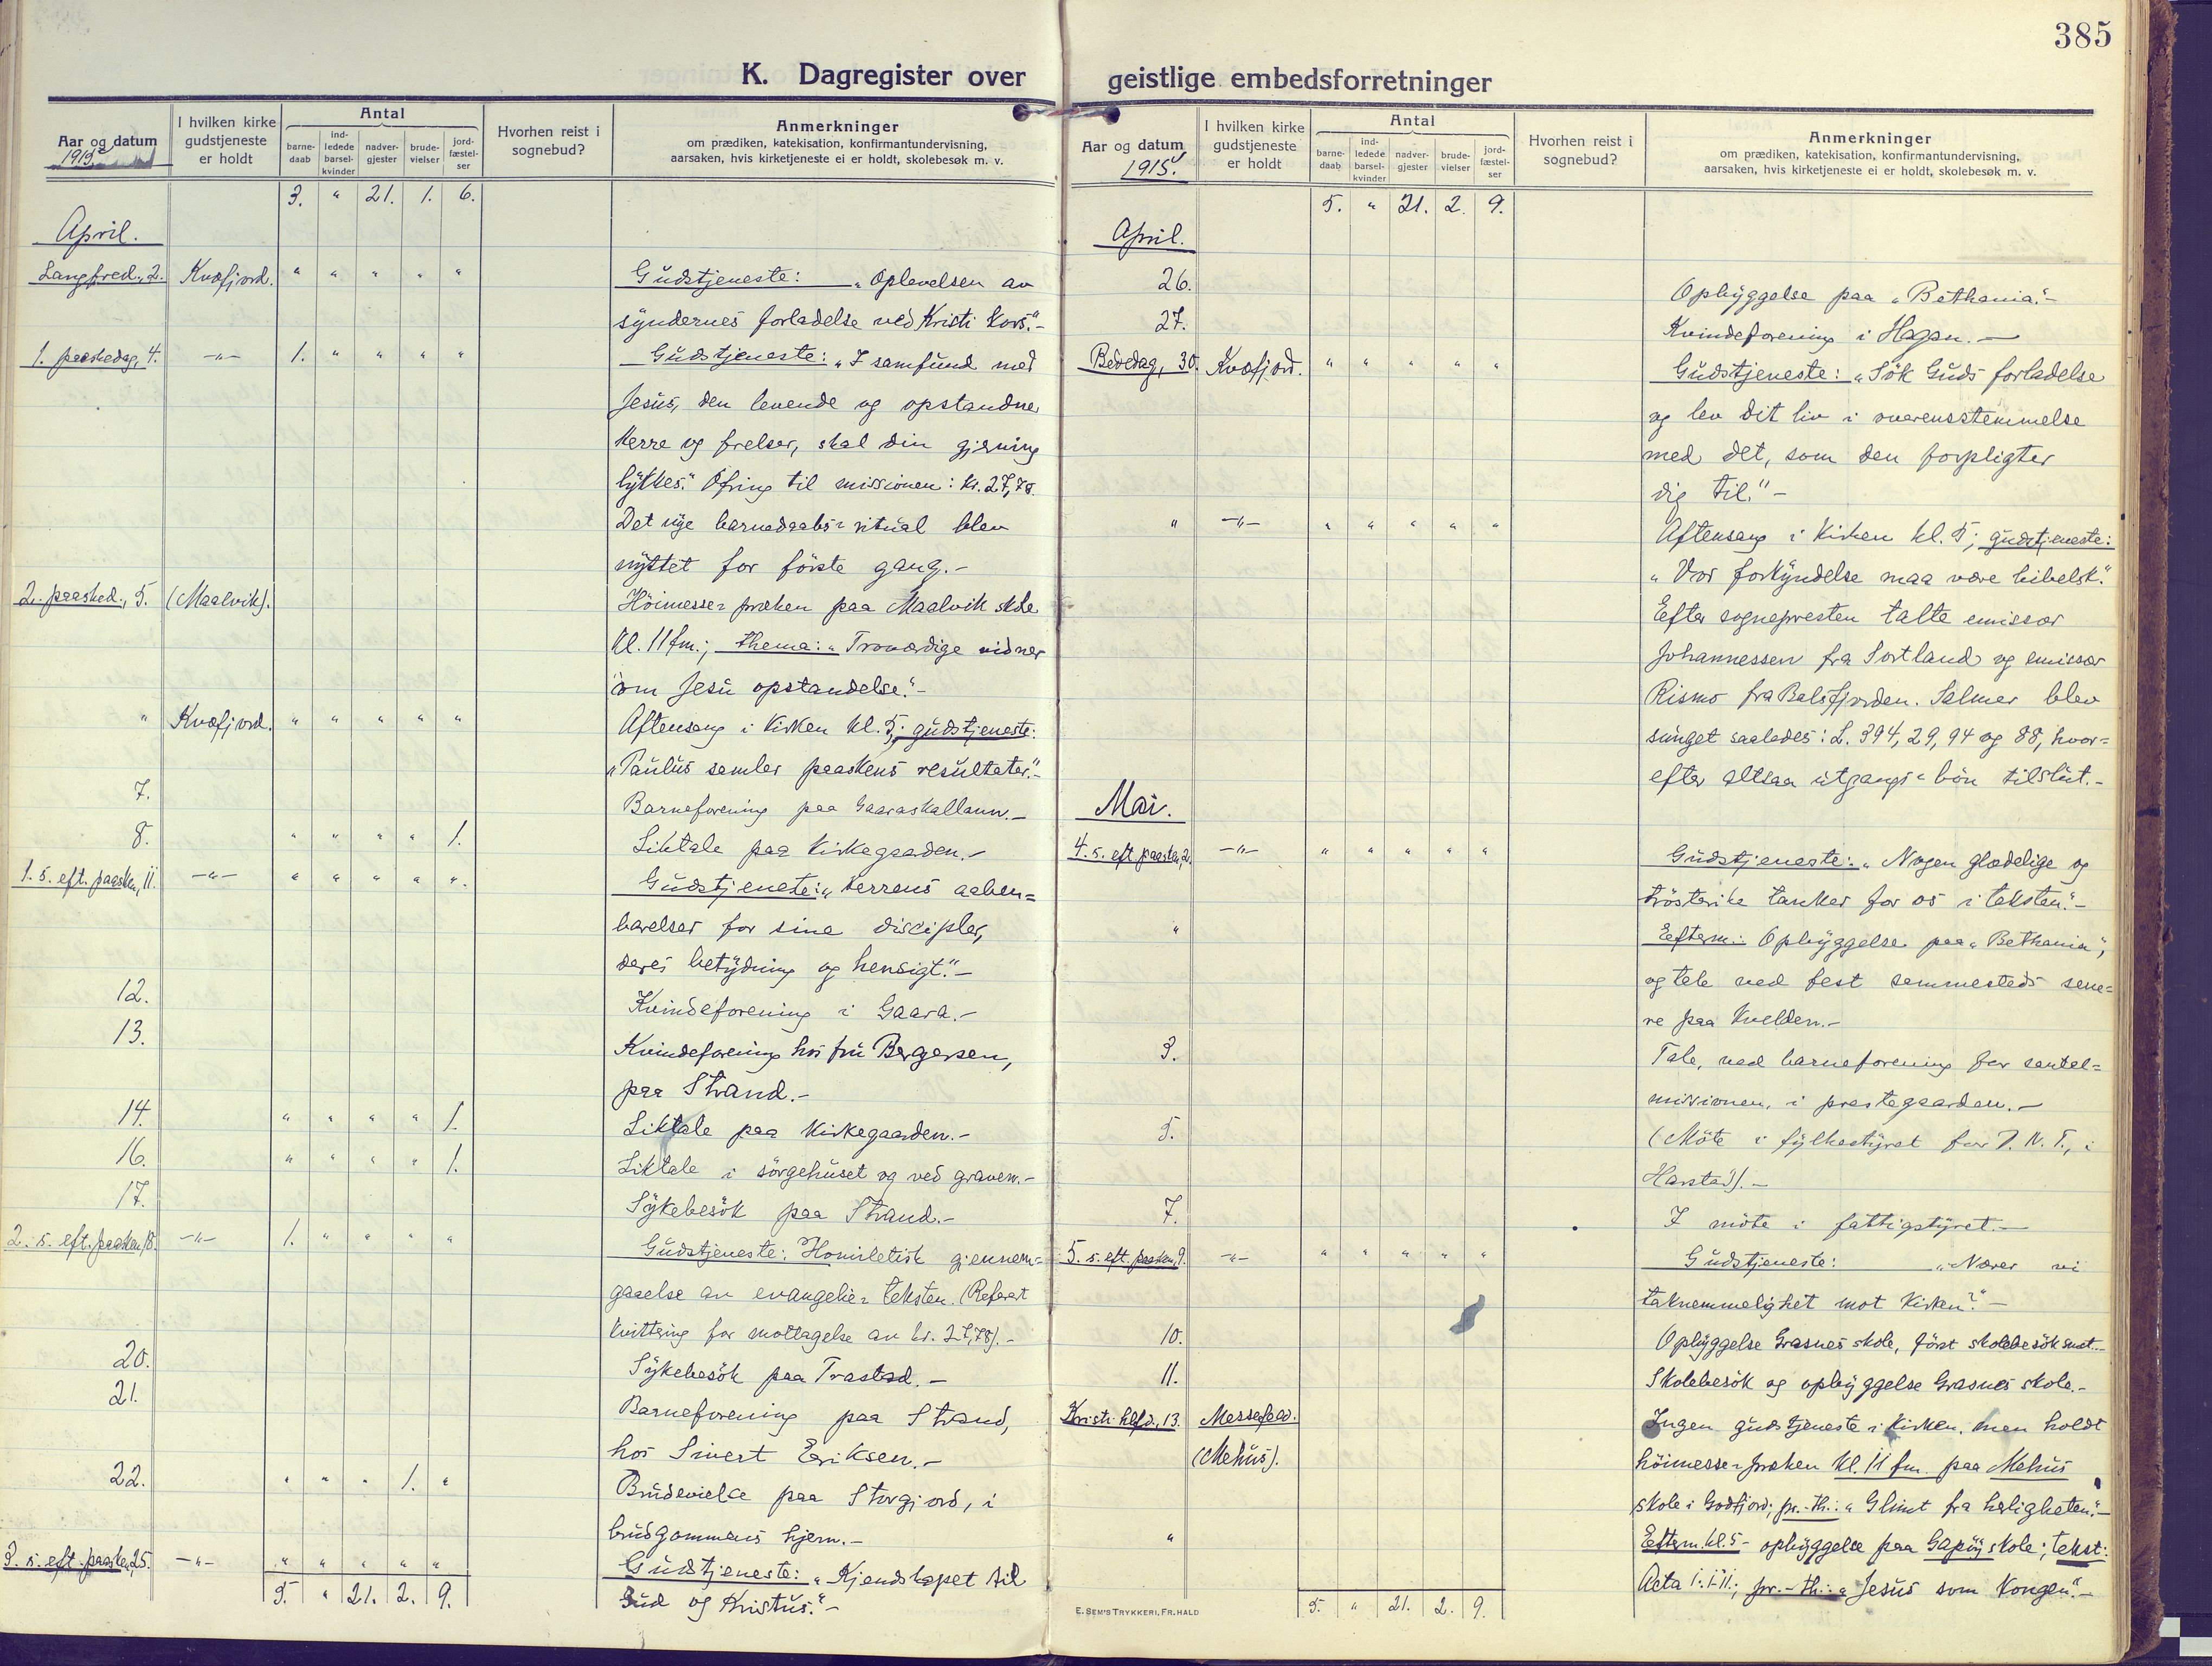 385
K. Dagregister over geistlige embedsforretninger
Aar og datum
1915
I hvilken kirke gudstjeneste er holdt
Antal
barne-daab
ind-ledede barsel-kvinder
nadver-gjester
brude-vielser
jord-fæstel-ser
Hvorhen reist i sognebud?
Anmerkninger
om prædiken, katekisation, konfirmantundervisning,
aarsaken, hvis kirketjeneste ei er holdt, skolebesøk m. v.
3. " 21. 1. 6.
April.
Langfred., 2. Kvæfjord. " " " " " Gudstjeneste: "Oplevelsen av
syndernes forladelse ved Kristi kors."-
1. paaskedag, 4. -"- 1. " " " " Gudstjeneste: "I samfund med
Jesus, den levende og opstandne
herre og frelser, skal din gjerning
lykkes." Ofring til missionen: kr. 27,78.
Det nye barnedaabs-ritual blev
nyttet for første gang.-
2. paasked., 5. (Maalvik). Höimesse-præken paa Maalvik skole
kl. 11 fm.; thema: "Troværdige vidner
om Jesu opstandelse."-
" Kvæfjord. " " " " " Aftensang i kirken kl. 5; gudstjeneste:
"Paulus samler paaskens resultater."-
7. Barneforening paa Gaaraskallann.-
8. " " " " 1. Liktale paa kirkegaarden.-
1. s. eft. paasken, 11. -"- " " " " " Gudstjeneste: "Herrens aaben=
barelser for sine disciple,
deres betydning og hensigt."-
12. Kvindeforening i Gaara.-
13. Kvindeforening hos fru Bergersen,
paa Strand.-
14. " " " " 1. Liktale paa kirkegaarden.-
16. " " " " 1. Liktale i sörgehuset og ved graven.-
17. Sykebesök paa Strand.-
2. s. eft. paasken, 18. -"- 1. " " " " Gudstjeneste: Homiletisk gjennem=
gaaelse av evangelie-teksten. (Referert
kvittering for mottagelse av kr. 27,78).-
20. Sykebesök paa Trastad.-
21. Barneforening paa Strand,
hos Sivert Eriksen.-
22. " " " 1. " Brudevielse paa Storgjord, i
brudgommens hjem.-
3. s. eft. paasken, 25. -"- " " " " " Gudstjeneste: "Kjendskapet til
Gud og Kristus."-
5. " 21. 2. 9.
Aar og datum
1915.
I hvilken kirke gudstjeneste er holdt
Antal
barne-daab
ind-ledede barsel-kvinder
nadver-gjester
brude-vielser
jord-fæstel-ser
Hvorhen reist i sognebud?
Anmerkninger
om prædiken, katekisation, konfirmantundervisning,
aarsaken, hvis kirketjeneste ei er holdt, skolebesøk m. v.
5. " 21. 2. 9.
April.
26. Opbyggelse paa "Bethania."-
27. Kvindeforening i
Bededag, 30. Kvæfjord. " " " " " Gudstjeneste: "Sök Guds forladelse
og lev dit liv i overensstemmelse
med det, som den forpligter
dig til."-
" -"- " " " " " Aftensang i kirken kl. 5; gudstjeneste:
"Vor forkyndelse maa være bibelsk."
Efter sognepresten talte emissær
Johannessen fra Sortland og emissær
Rismo fra Balsfjorden. Salmer blev
sunget saaledes: L. 394, 29, 94 og 88, hvor=
efter altsaa utgangs-bön tilslut.-
Mai.
4. s. eft. paasken, 2. -"- " " " " " Gudstjeneste: "Nogen glædelige og
trösterike tanker for os i teksten."-
" Efterm.: Opbyggelse paa "Bethania",
og tale ved fest sammesteds sene=
re paa kvelden.-
3. Tale, ved barneforening for santal=
missionen, i prestegaarden.-
5. (Möte i fylkestyret for D. N. T., i
Harstad).-
7. I möte i fattigstyret.-
5. s. eft. paasken, 9. -"- " " " " " Gudstjeneste: "Nærer vi
taknemmelighet mot kirken?"-
10. Opbyggelse Grasnes skole, först skolebesök smst.-
11. Skolebesök og opbyggelse Grasnes skole.-
Kristi hlfd., 13. Messefald. Ingen gudstjeneste i kirken, men holdt
(Mehus). höimesse-præken kl. 11 fm. paa Mehus
skole i Godfjord; pr.-th.: "Glimt fra herligheten."-
" Efterm. kl. 5 - opbyggelse paa Gapöy skole; tekst:
Acta 1:1-11; pr.-th.: "Jesus som kongen."-
E. SEM'S TRYKKERI, FR. HALD
5. " 21. 2. 9.